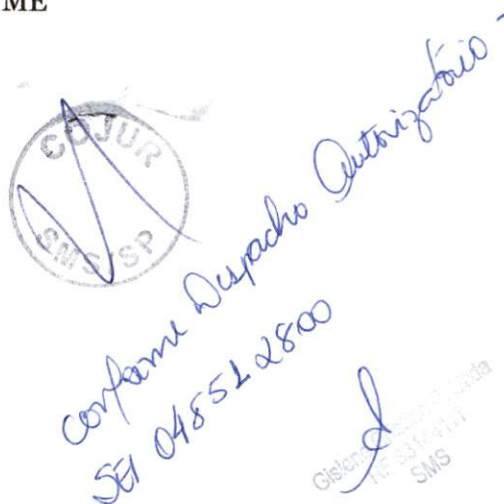 ME
COJUR
SMS/SP
conforme Despacho Autorizatório -
SEI 048512800
SMS